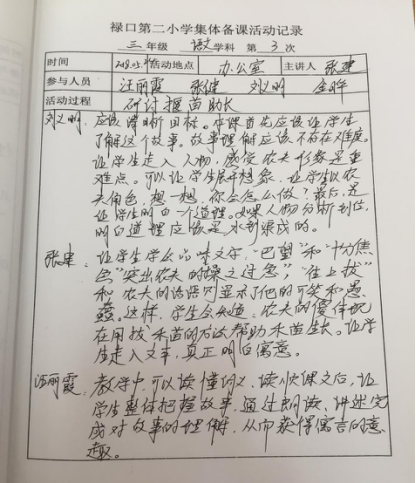 禄口第二小学集体备课活动记录
三年级 语文学科 第 3 次
时间 2018.05. 活动地点 办公室 主讲人 张建
参与人员 汪丽霞 张健 刘义明
活动过程 研讨揠苗助长
刘义明：应该清晰目标。本课首先应该让学生
了解这个故事。故事理解应该不存在难度。
让学生走入人物，感受农夫形象是重
难点。可以让学生展开想象，让学生以农
夫角色，想一想，你会怎么做？最后，是
让学生明白一个道理。如果人物分析到位，
明白道理应该是水到渠成的。
张建：让学生学会品味文字，“巴望”和“十分焦
急”突出农夫的操之过急，“往上拔”
和农夫的话语则显示了他的可笑和愚
蠢。这样，学生会知道：农夫的傻在
在用拔禾苗的方法帮助禾苗生长。让学
生走入文章，真正明白寓意。
汪丽霞：教学中，可以读懂词义，读懂课文后，让
学生整体把握故事，通过朗读、讲述完
成对故事的理解，从而获得寓言的意
趣。